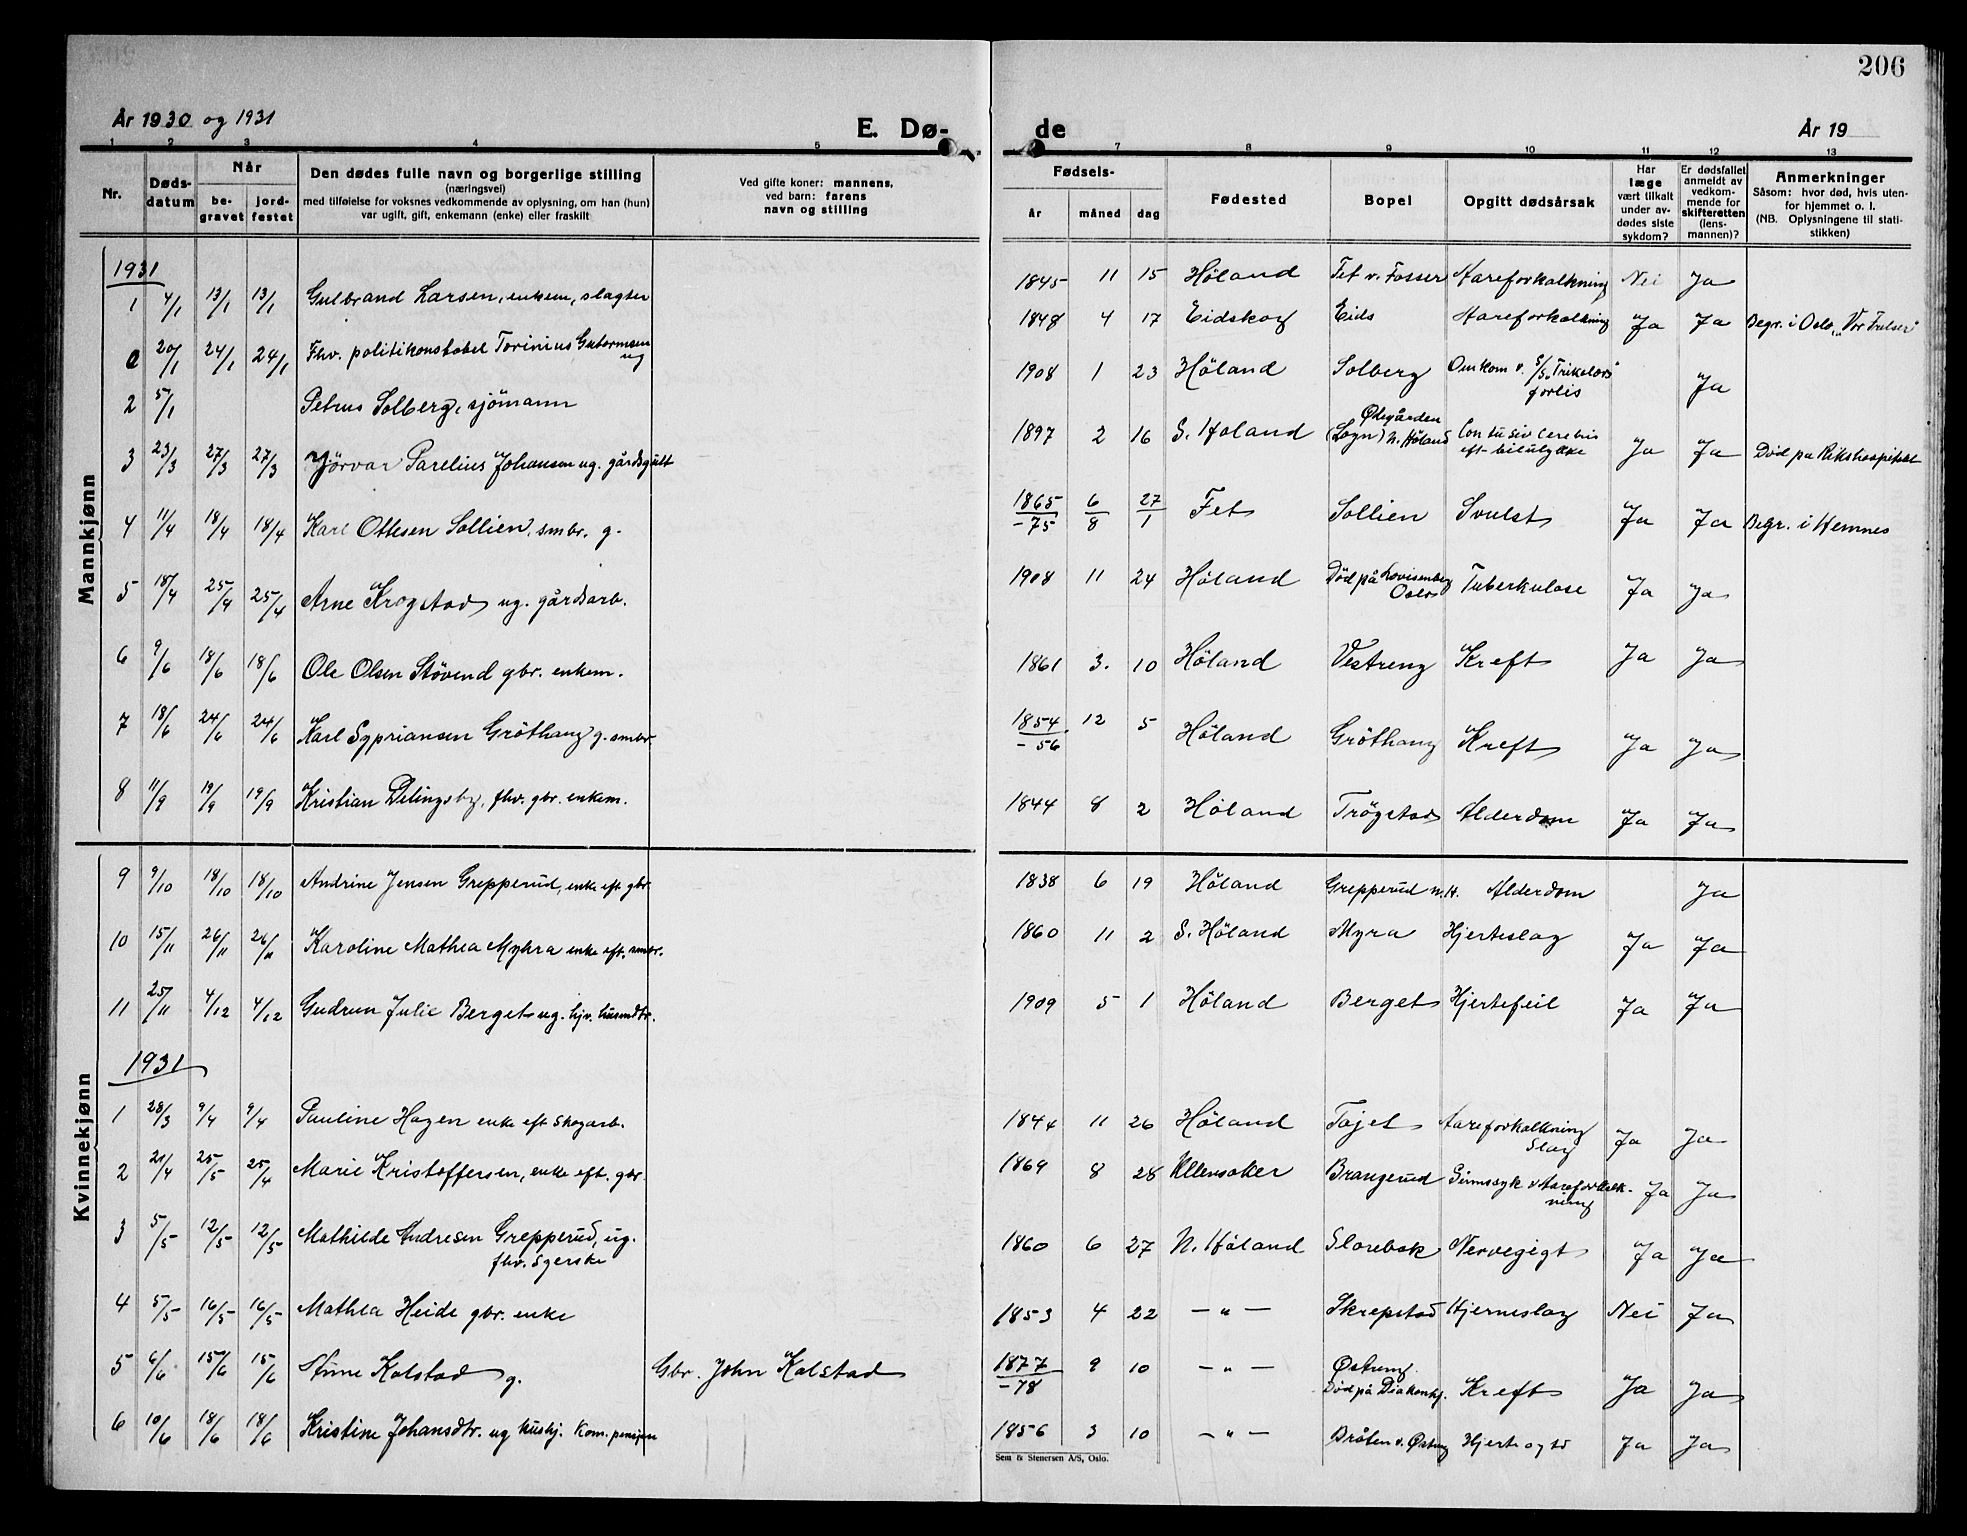 206
År 1930 og 1931
E. Dø-
de
År 19
1 2 3 4 5 7 8 9 10 11 12 13
Nr.
Døds-
datum
Når
be-
gravet
jord-
festet
Den dødes fulle navn og borgerlige stilling
(næringsvei)
med tilføielse for voksnes vedkommende av oplysning, om han (hun)
var ugift, gift, enkemann (enke) eller fraskilt
Ved gifte koner: mannens,
ved barn: farens
navn og stilling
Fødsels-
år
måned
dag
Fødested
Bopel
Opgitt dødsårsak
Har
læge
vært tilkalt
under av-
dødes siste
sykdom?
Er dødsfallet
anmeldt av
vedkom-
mende for
skifteretten
(lens-
mannen)?
Anmerkninger
Såsom: hvor død, hvis uten-
for hjemmet o. l.
(NB. Oplysningene til stati-
stikken)
Mannkjønn
1931
1 4/1 13/1 13/1 Gulbrand Larsen, enkem, slagter 1845 11 15 Høland Fet v. Fosser Aareforkalkning Nei Ja
0 20/1 24/1 24/1 Fhv. politikonstabel Torinius Gutormsen ug 1848 4 17 Eidskog Eids Aareforkalkning Ja Ja Begr. i Oslo, "Vor Frelser"
2 5/1 Petrus Solberg, sjömann 1908 1 23 Høland Solberg Omkom v. S/S "Trikolors" forlis Ja
3 23/3 27/3 27/3 Parelius Johansen ug. gårdsgutt 1897 2 16 S. Høland Ødegården (Sogn) N. Høland Contusiv cerebris eft. bilulykke Ja Ja Död på Rikshospitalet
4 11/4 18/4 18/4 Karl Ottesen Sollien, smbr. g. 1865/-75 6/8 27/1 Fet Sollien Svulst Ja Ja Begr. i Hemnes
5 18/4 25/4 25/4 Arne Krogstad ug. gårdsarb. 1908 11 24 Høland Död på Lovisenberg Oslo Tuberkulose Ja Ja
6 9/6 18/6 18/6 Ole Olsen Stövend gbr. enkem. 1861 3. 10 Höland Vestreng Kreft Ja Ja
7 18/6 24/6 24/6 Karl Sypriansen Gröthaug g. smbr. 1854/-56 12 5 Höland Gröthaug Kreft Ja Ja
8 11/9 19/9 19/9 Kristian Delingsby, fhv. gbr. enkem. 1844 8 2 Höland Trögstad Alderdom Ja Ja
Kvinnekjønn
9 9/10 18/10 18/10 Andrine Jensen Grepperud, enke eft gbr. 1838 6 19 Höland Grepperud N.H. Alderdom Ja
10 15/11 26/11 26/11 Karoline Mathea Myhra enke eft. smbr. 1860 11 2 S. Höland Myra Hjerteslag Ja Ja
11 25/11 4/12 4/12 Gudrun Julie Berget ug. hjv. husmdtr. 1909 5 1 Höland Berget Hjertefeil Ja Ja
1931
1 28/3 9/4 9/4 Pauline Hagen enke eft skogarb. 1844 11 26 Höland Tajet Aareforkalkning Slag Ja Ja
2 21/4 25/5 25/4 Marie Kristoffersen, enke eft. gbr. 1869 8 28 Ullensaker Brangerud Sinnssyk v Aareforkalkning Ja Ja
3 5/5 12/5 12/5 Mathilde Andresen Grepperud, ug. fhv. syerske 1860 6 27 N. Höland Slorebak Nervegigt Ja Ja
4 5/5 16/5 16/5 Mathea Heide gbr. enke 1853 4 22 — " — Skrepstad Hjerneslag Nei Ja
5 6/6 15/6 15/6 Kolstad g. Gbr. John Kolstad 1877/-78 9 10 — " — Østreng. Död på Diakonhj. Kreft Ja Ja
6 10/6 18/6 18/6 Kristine Johansdtr. ug hushj. Kom. pensjon 1856 3 10 — " — Bråten v. Østreng Ja Ja
Sem & Stenersen A/S, Oslo.